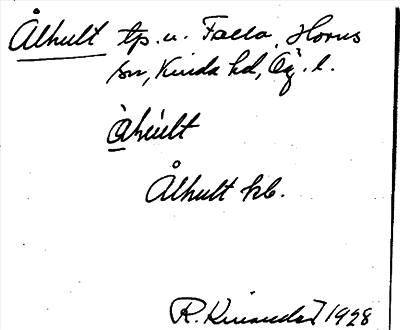 Ålhult tp. u. Falla, Horns
sn, Kinda hd, Ög. l.
Åhult
Ålhult kb.
R. Kinander 1928